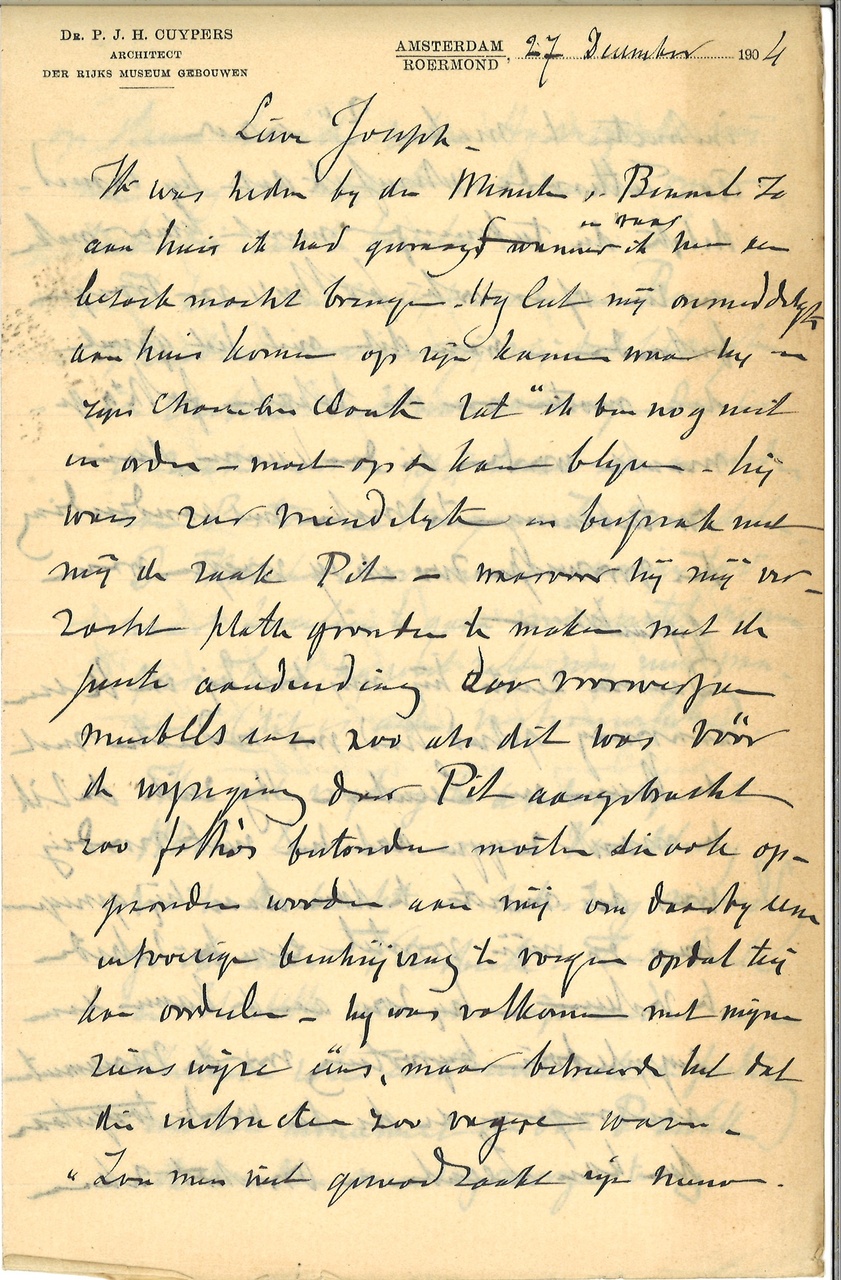 DR. P. J. H. CUYPERS
ARCHITECT
DER RIJKS MUSEUM GEBOUWEN
AMSTERDAM
ROERMOND, 27 December 1904
Lieve Joseph
Ik was heden by den Minister
en vraag
aan huis ik had gevraagd wanneer ik hem een
bezoek mocht brengen. Hy liet mij onmiddelyk
aan huis komen op zyn kamer waar hy in
zyn Chambre Cloak zat "ik ben nog niet
in orde – moet op de kamer blyven – hij
was zeer vriendelyk en besprak met
mij de zaak Pit – waarvoor hij mij ver-
zocht platte gronden te maken met de
juiste aanduiding der voorwerpen
meubels enz zoo als dit was vóór
de wyziging door Pit aangebracht
zoo foto's bestonden moeten die ook op-
gezonden worden aan mij om daarby eene
uitvoerige beschrijving te voegen opdat hij
kan oordeelen – hy was volkomen met mijne
zienswijze eens, maar betreurde het dat
die instructien zoo vage waren –
"Zou men niet genoodzaakt zijn nieuwe